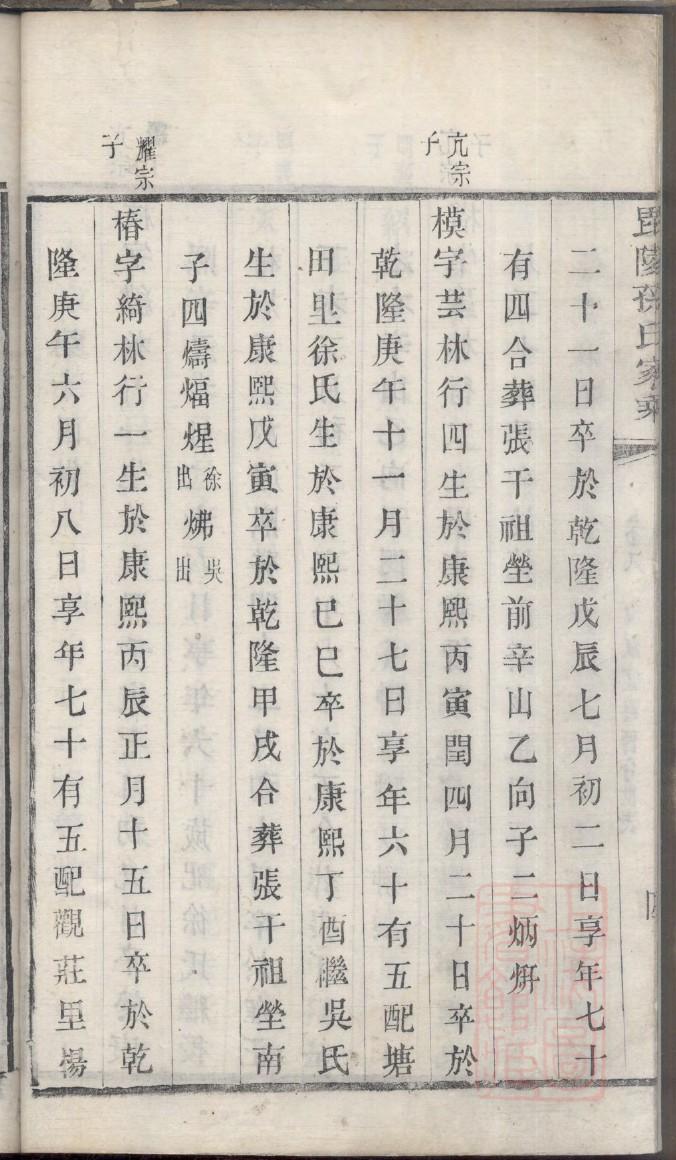 毘陵孫氏家乘
二十一日卒於乾隆戊辰七月初二日享年七十
有四合葬張干祖塋前辛山乙向子二炳烶
亢宗子
模字芸林行四生於康熙丙寅閏四月二十日卒於
乾隆庚午十一月二十七日享年六十有五配塘
田里徐氏生於康熙己巳卒於康熙丁酉繼吳氏
生於康熙戊寅卒於乾隆甲戌合葬張干祖塋南
子四燽煏煋徐出炥吳出
耀宗子
椿字綺林行一生於康熙丙辰正月十五日卒於乾
隆庚午六月初八日享年七十有五配觀莊里楊